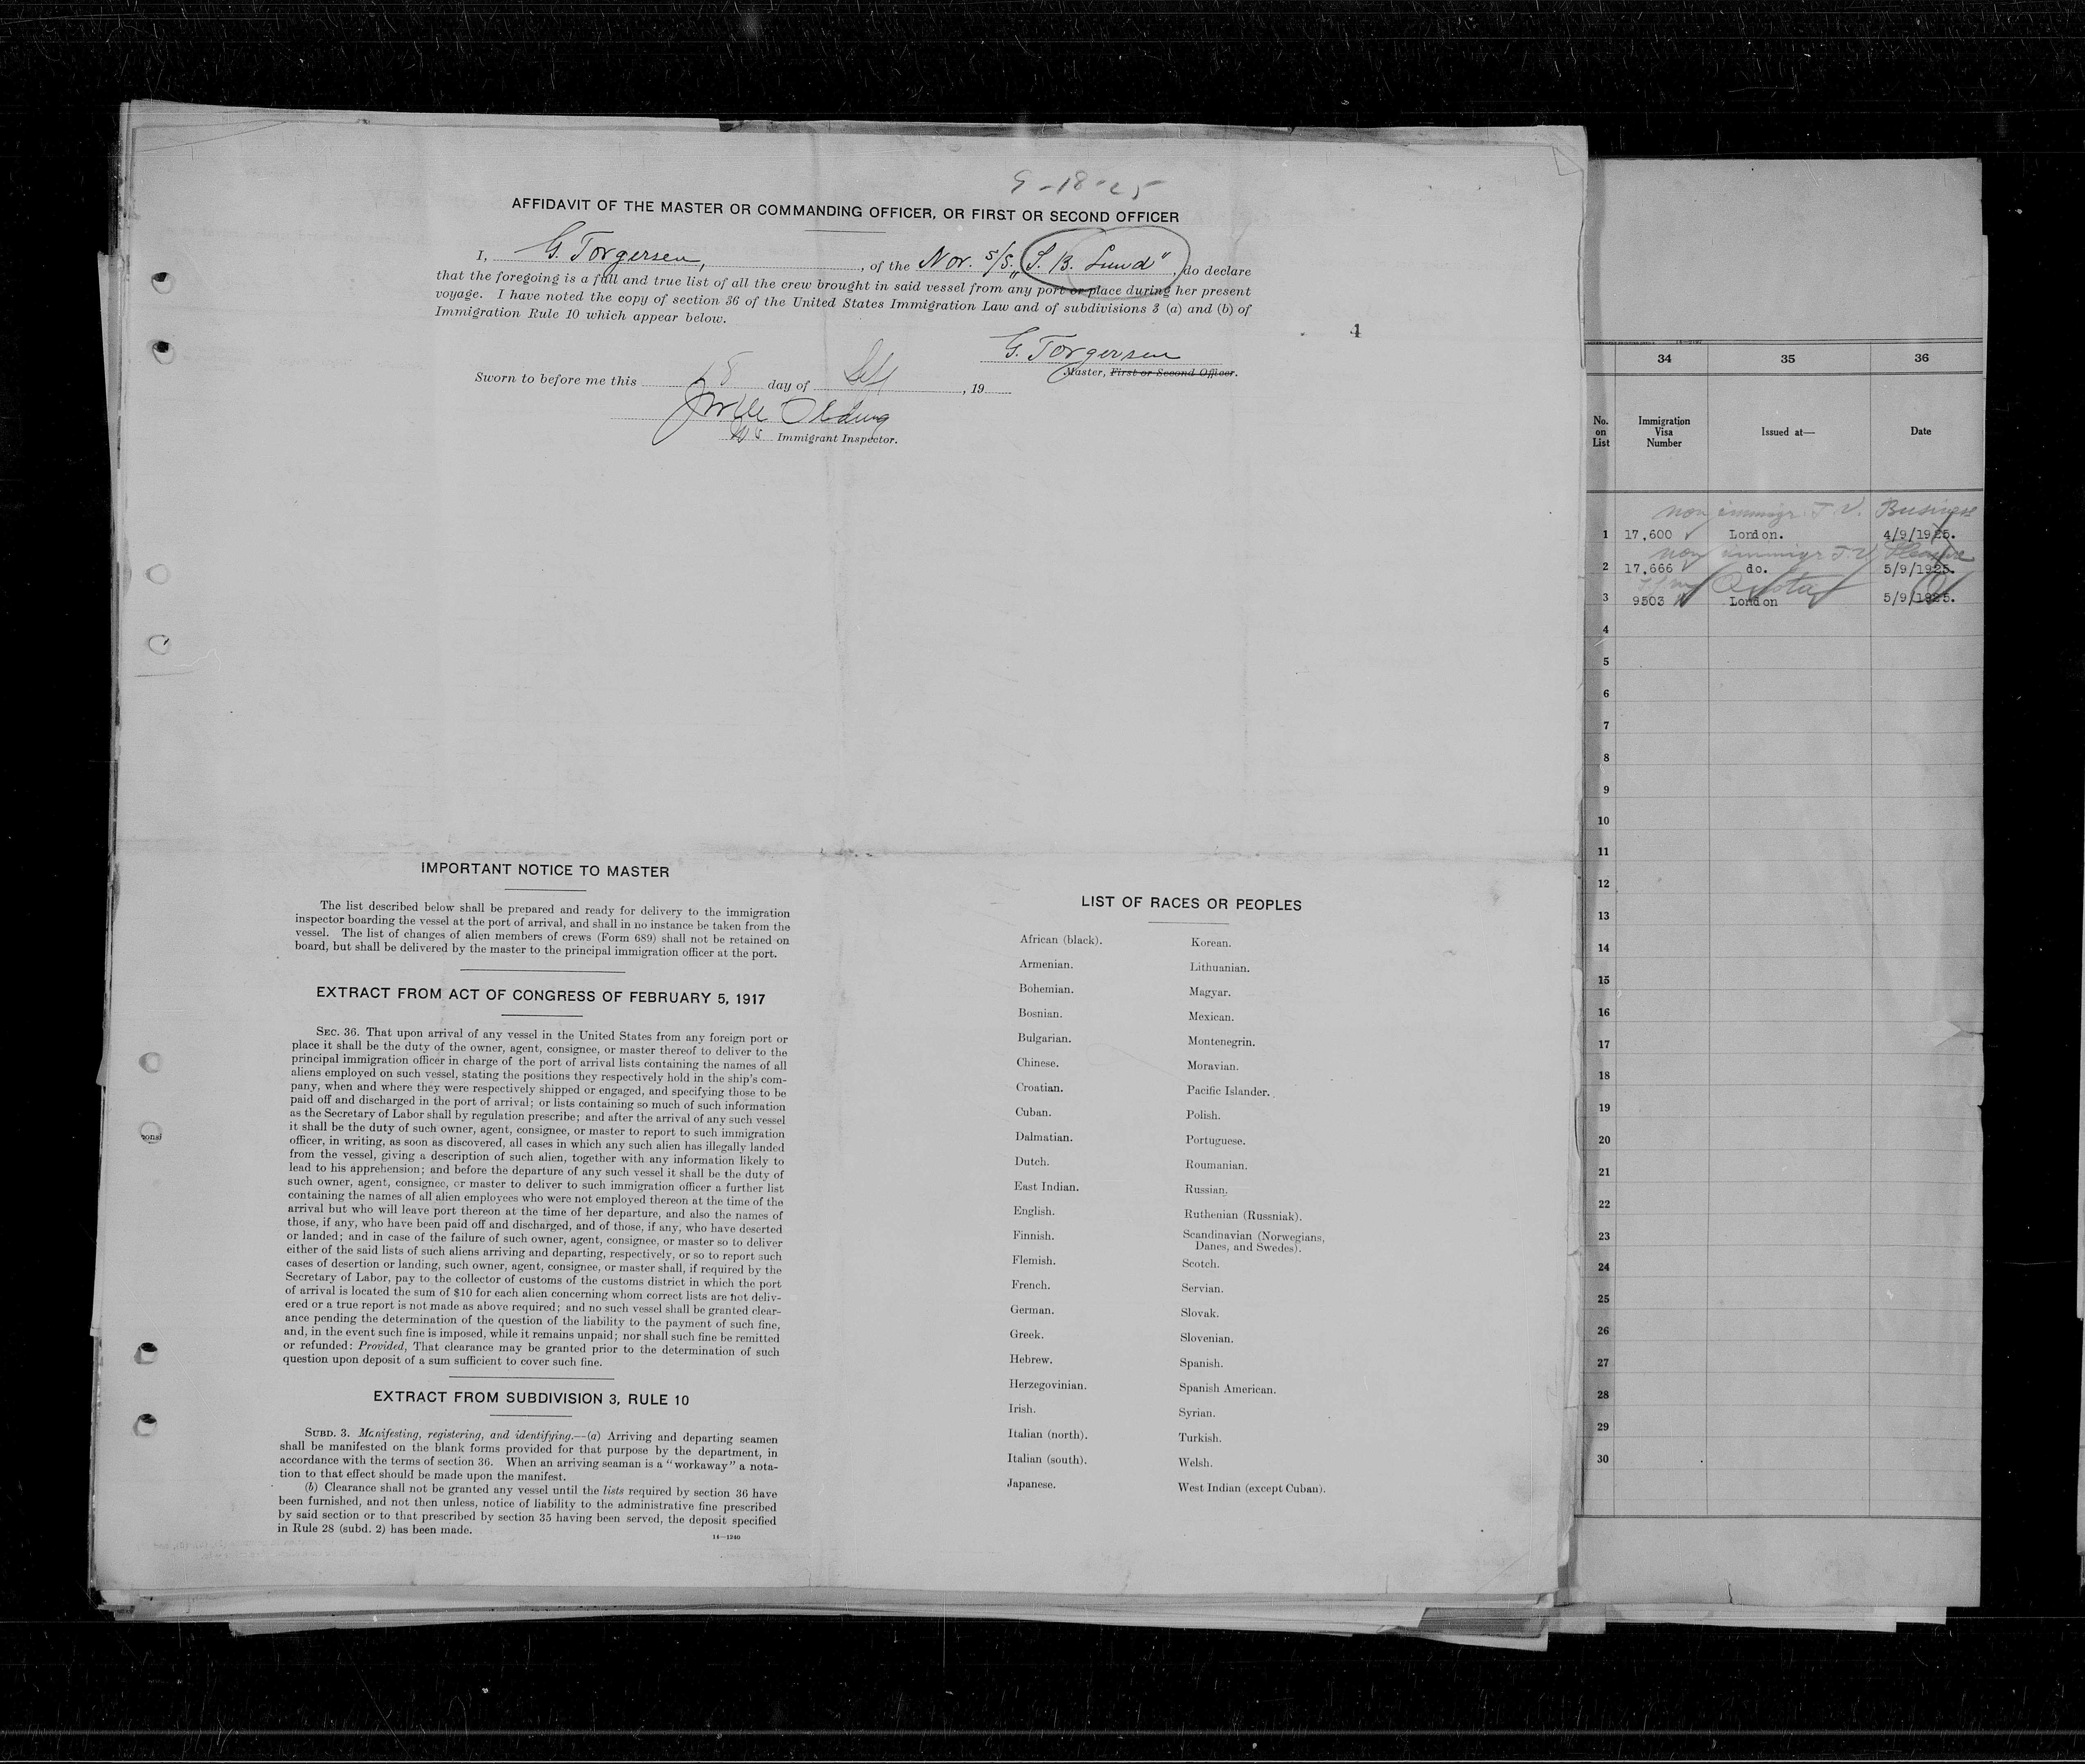 9-18-25
AFFIDAVIT OF THE MASTER OR COMMANDING OFFICER, OR FIRST OR SECOND OFFICER
I, G. Torgersen, , of the Nor. S/S. „S. B. Lund" , do declare
that the foregoing is a full and true list of all the crew brought in said vessel from any port or place during her present
voyage. I have noted the copy of section 36 of the United States Immigration Law and of subdivisions 3 (a) and (b) of
Immigration Rule 10 which appear below.
4
G. Torgersen
Master, First or Second Officer.
Sworn to before me this 18 day of Sept , 19
Immigrant Inspector.
IMPORTANT NOTICE TO MASTER
The list described below shall be prepared and ready for delivery to the immigration
inspector boarding the vessel at the port of arrival, and shall in no instance be taken from the
vessel. The list of changes of alien members of crews (Form 689) shall not be retained on
board, but shall be delivered by the master to the principal immigration officer at the port.
EXTRACT FROM ACT OF CONGRESS OF FEBRUARY 5, 1917
SEC. 36. That upon arrival of any vessel in the United States from any foreign port or
place it shall be the duty of the owner, agent, consignee, or master thereof to deliver to the
principal immigration officer in charge of the port of arrival lists containing the names of all
aliens employed on such vessel, stating the positions they respectively hold in the ship's com-
pany, when and where they were respectively shipped or engaged, and specifying those to be
paid off and discharged in the port of arrival; or lists containing so much of such information
as the Secretary of Labor shall by regulation prescribe; and after the arrival of any such vessel
it shall be the duty of such owner, agent, consignee, or master to report to such immigration
officer, in writing, as soon as discovered, all cases in which any such alien has illegally landed
from the vessel, giving a description of such alien, together with any information likely to
lead to his apprehension; and before the departure of any such vessel it shall be the duty of
such owner, agent, consignee, or master to deliver to such immigration officer a further list
containing the names of all alien employees who were not employed thereon at the time of the
arrival but who will leave port thereon at the time of her departure, and also the names of
those, if any, who have been paid off and discharged, and of those, if any, who have deserted
or landed; and in case of the failure of such owner, agent, consignee, or master so to deliver
either of the said lists of such aliens arriving and departing, respectively, or so to report such
cases of desertion or landing, such owner, agent, consignee, or master shall, if required by the
Secretary of Labor, pay to the collector of customs of the customs district in which the port
of arrival is located the sum of $10 for each alien concerning whom correct lists are not deliv-
ered or a true report is not made as above required; and no such vessel shall be granted clear-
ance pending the determination of the question of the liability to the payment of such fine,
and, in the event such fine is imposed, while it remains unpaid; nor shall such fine be remitted
or refunded: Provided, That clearance may be granted prior to the determination of such
question upon deposit of a sum sufficient to cover such fine.
EXTRACT FROM SUBDIVISION 3, RULE 10
SUBD. 3. Manifesting, registering, and identifying.—(a) Arriving and departing seamen
shall be manifested on the blank forms provided for that purpose by the department, in
accordance with the terms of section 36. When an arriving seaman is a "workaway" a nota-
tion to that effect should be made upon the manifest.
(b) Clearance shall not be granted any vessel until the lists required by section 36 have
been furnished, and not then unless, notice of liability to the administrative fine prescribed
by said section or to that prescribed by section 35 having been served, the deposit specified
in Rule 28 (subd. 2) has been made.
14—1240
LIST OF RACES OR PEOPLES
African (black). Korean.
Armenian. Lithuanian.
Bohemian. Magyar.
Bosnian. Mexican.
Bulgarian. Montenegrin.
Chinese. Moravian.
Croatian. Pacific Islander.
Cuban. Polish.
Dalmatian. Portuguese.
Dutch. Roumanian.
East Indian. Russian.
English. Ruthenian (Russniak).
Finnish. Scandinavian (Norwegians,
Danes, and Swedes).
Flemish. Scotch.
French. Servian.
German. Slovak.
Greek. Slovenian.
Hebrew. Spanish.
Herzegovinian. Spanish American.
Irish. Syrian.
Italian (north). Turkish.
Italian (south). Welsh.
Japanese. West Indian (except Cuban).
34 35 36
No. on List Immigration Visa Number Issued at— Date
non immigr. T. V. Business
1 17,600 London. 4/9/1925.
non immigr T V Pleasure
2 17,666 do. 5/9/1925.
Quota
3 9503 London 5/9/1925.
4
5
6
7
8
9
10
11
12
13
14
15
16
17
18
19
20
21
22
23
24
25
26
27
28
29
30